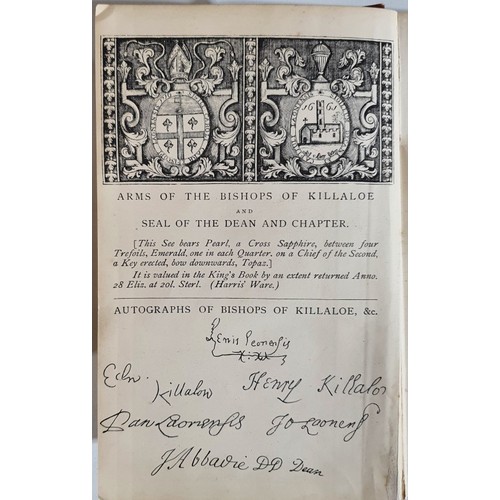 ARMS OF THE BISHOPS OF KILLALOE
AND
SEAL OF THE DEAN AND CHAPTER.
[This See bears Pearl, a Cross Sapphire, between four
Trefoils, Emerald, one in each Quarter, on a Chief of the Second,
a Key erected, bow downwards, Topaz.]
It is valued in the King's Book by an extent returned Anno.
28 Eliz. at 20l. Sterl. (Harris' Ware.)
AUTOGRAPHS OF BISHOPS OF KILLALOE, &c.
Edw. Killalow
Henry Killalo
Dan Laonensis
Jo Laonens
J Abbadie DD Dean